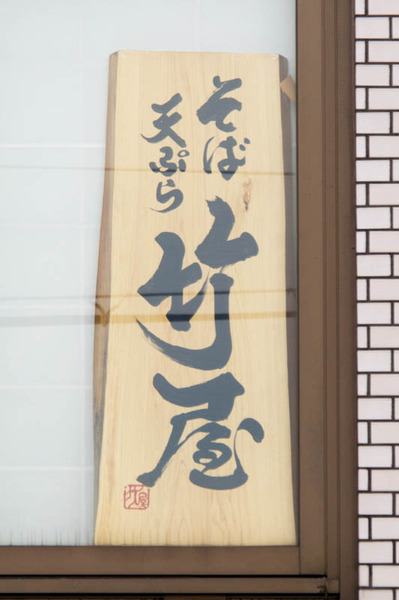 そば
天ぷら
竹屋